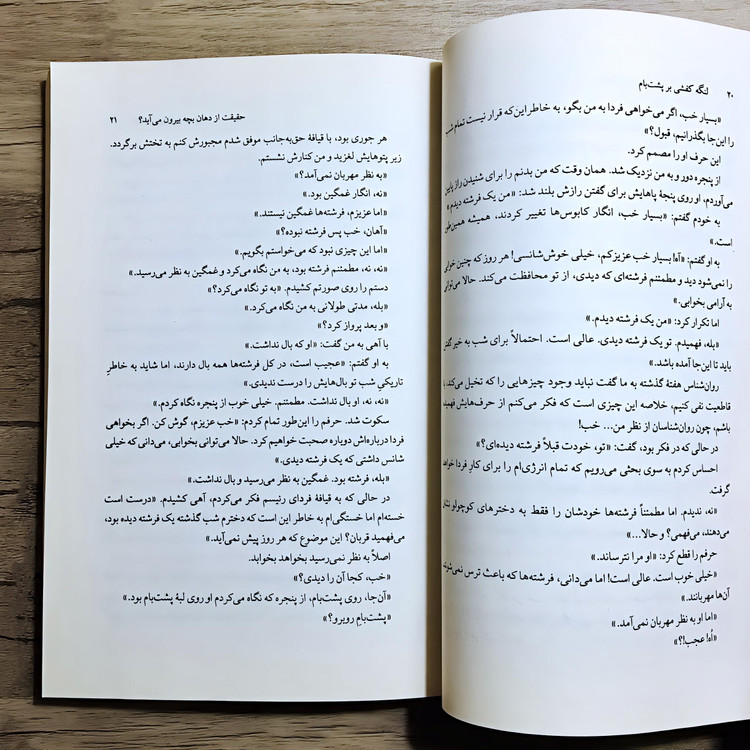 ۲۰ لنگه کفشی بر پشت‌بام
«بسیار خب، اگر می‌خواهی فردا به من بگو، به خاطر این‌که قرار نیست تمام شب
را این‌جا بگذرانیم، قبول؟»
این حرف او را مصمم کرد.
از پنجره دور و به من نزدیک شد. همان وقت که من بدنم را برای شنیدن راز پایین
می‌آوردم، او روی پنجهٔ پاهایش برای گفتن رازش بلند شد: «من یک فرشته دیدم.»
به خودم گفتم: «بسیار خب، انگار کابوس‌ها تغییر کردند، همیشه همین‌طور
است.»
به او گفتم: «آه! بسیار خب عزیزکم، خیلی خوش‌شانسی! هر روز که چنین
را نمی‌شود دید و مطمئنم فرشته‌ای که دیدی، از تو محافظت می‌کند. حالا می‌توانی
به آرامی بخوابی.»
اما تکرار کرد: «من یک فرشته دیدم.»
«بله، فهمیدم. تو یک فرشته دیدی. عالی است. احتمالاً برای شب به خیر گفتن
باید تا این‌جا آمده باشد.»
روان‌شناس هفتهٔ گذشته به ما گفت نباید وجود چیزهایی را که تخیل می‌کند با
قاطعیت نفی کنیم، خلاصه این چیزی است که فکر می‌کنم از حرف‌هایش
باشم، چون روان‌شناسان از نظر من... خب!
در حالی که در فکر بود، گفت: «تو، خودت قبلاً فرشته دیده‌ای؟»
احساس کردم به سوی بحثی می‌رویم که تمام انرژی‌ام را برای کارِ فردا خواهد
گرفت.
«نه، ندیدم. اما مطمئناً فرشته‌ها خودشان را فقط به دخترهای کوچولو نشان
می‌دهند، می‌فهمی؟ و حالا...»
حرفم را قطع کرد: «او مرا نترساند.»
«خیلی خوب است. عالی است! اما می‌دانی، فرشته‌ها که باعث ترس نمی‌شوند،
آن‌ها مهربانند.»
«اما او به نظر مهربان نمی‌آمد.»
«اُه! عجب!؟»
حقیقت از دهان بچه بیرون می‌آید؟ ۲۱
هر جوری بود، با قیافهٔ حق‌به‌جانب موفق شدم مجبورش کنم به تختش برگردد.
زیر پتوهایش لغزید و من کنارش نشستم.
«به نظر مهربان نمی‌آمد؟»
«نه، انگار غمگین بود.»
«اما عزیزم، فرشته‌ها غمگین نیستند.»
«آهان، خب پس فرشته نبوده؟»
«اما این چیزی نبود که می‌خواستم بگویم.»
«نه، نه، مطمئنم فرشته بود، به من نگاه می‌کرد و غمگین به نظر می‌رسید.»
دستم را روی صورتم کشیدم. «به تو نگاه می‌کرد؟»
«بله، مدتی طولانی به من نگاه می‌کرد.»
«و بعد پرواز کرد؟»
با آهی به من گفت: «او که بال نداشت.»
به او گفتم: «عجیب است، در کل فرشته‌ها همه بال دارند، اما شاید به خاطرِ
تاریکیِ شب تو بال‌هایش را درست ندیدی.»
«نه، نه، او بال نداشت. مطمئنم. خیلی خوب از پنجره نگاه کردم.»
سکوت شد. حرفم را این‌طور تمام کردم: «خب عزیزم، گوش کن. اگر بخواهی
فردا درباره‌اش دوباره صحبت خواهیم کرد. حالا می‌توانی بخوابی، می‌دانی که خیلی
شانس داشتی که یک فرشته دیدی.»
«بله، فرشته بود. غمگین به نظر می‌رسید و بال نداشت.»
در حالی که به قیافهٔ فردای رئیسم فکر می‌کردم، آهی کشیدم. «درست است
خسته‌ام اما خستگی‌ام به خاطر این است که دخترم شب گذشته یک فرشته دیده بود،
می‌فهمید قربان؟ این موضوعی که هر روز پیش نمی‌آید.»
اصلاً به نظر نمی‌رسید بخواهد بخوابد.
«خب، کجا آن را دیدی؟»
«آن‌جا، روی پشت‌بام، از پنجره که نگاه می‌کردم او روی لبهٔ پشت‌بام بود.»
«پشت‌بامِ روبرو؟»